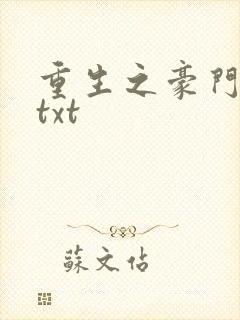 重生之豪門
txt
蘇文佔